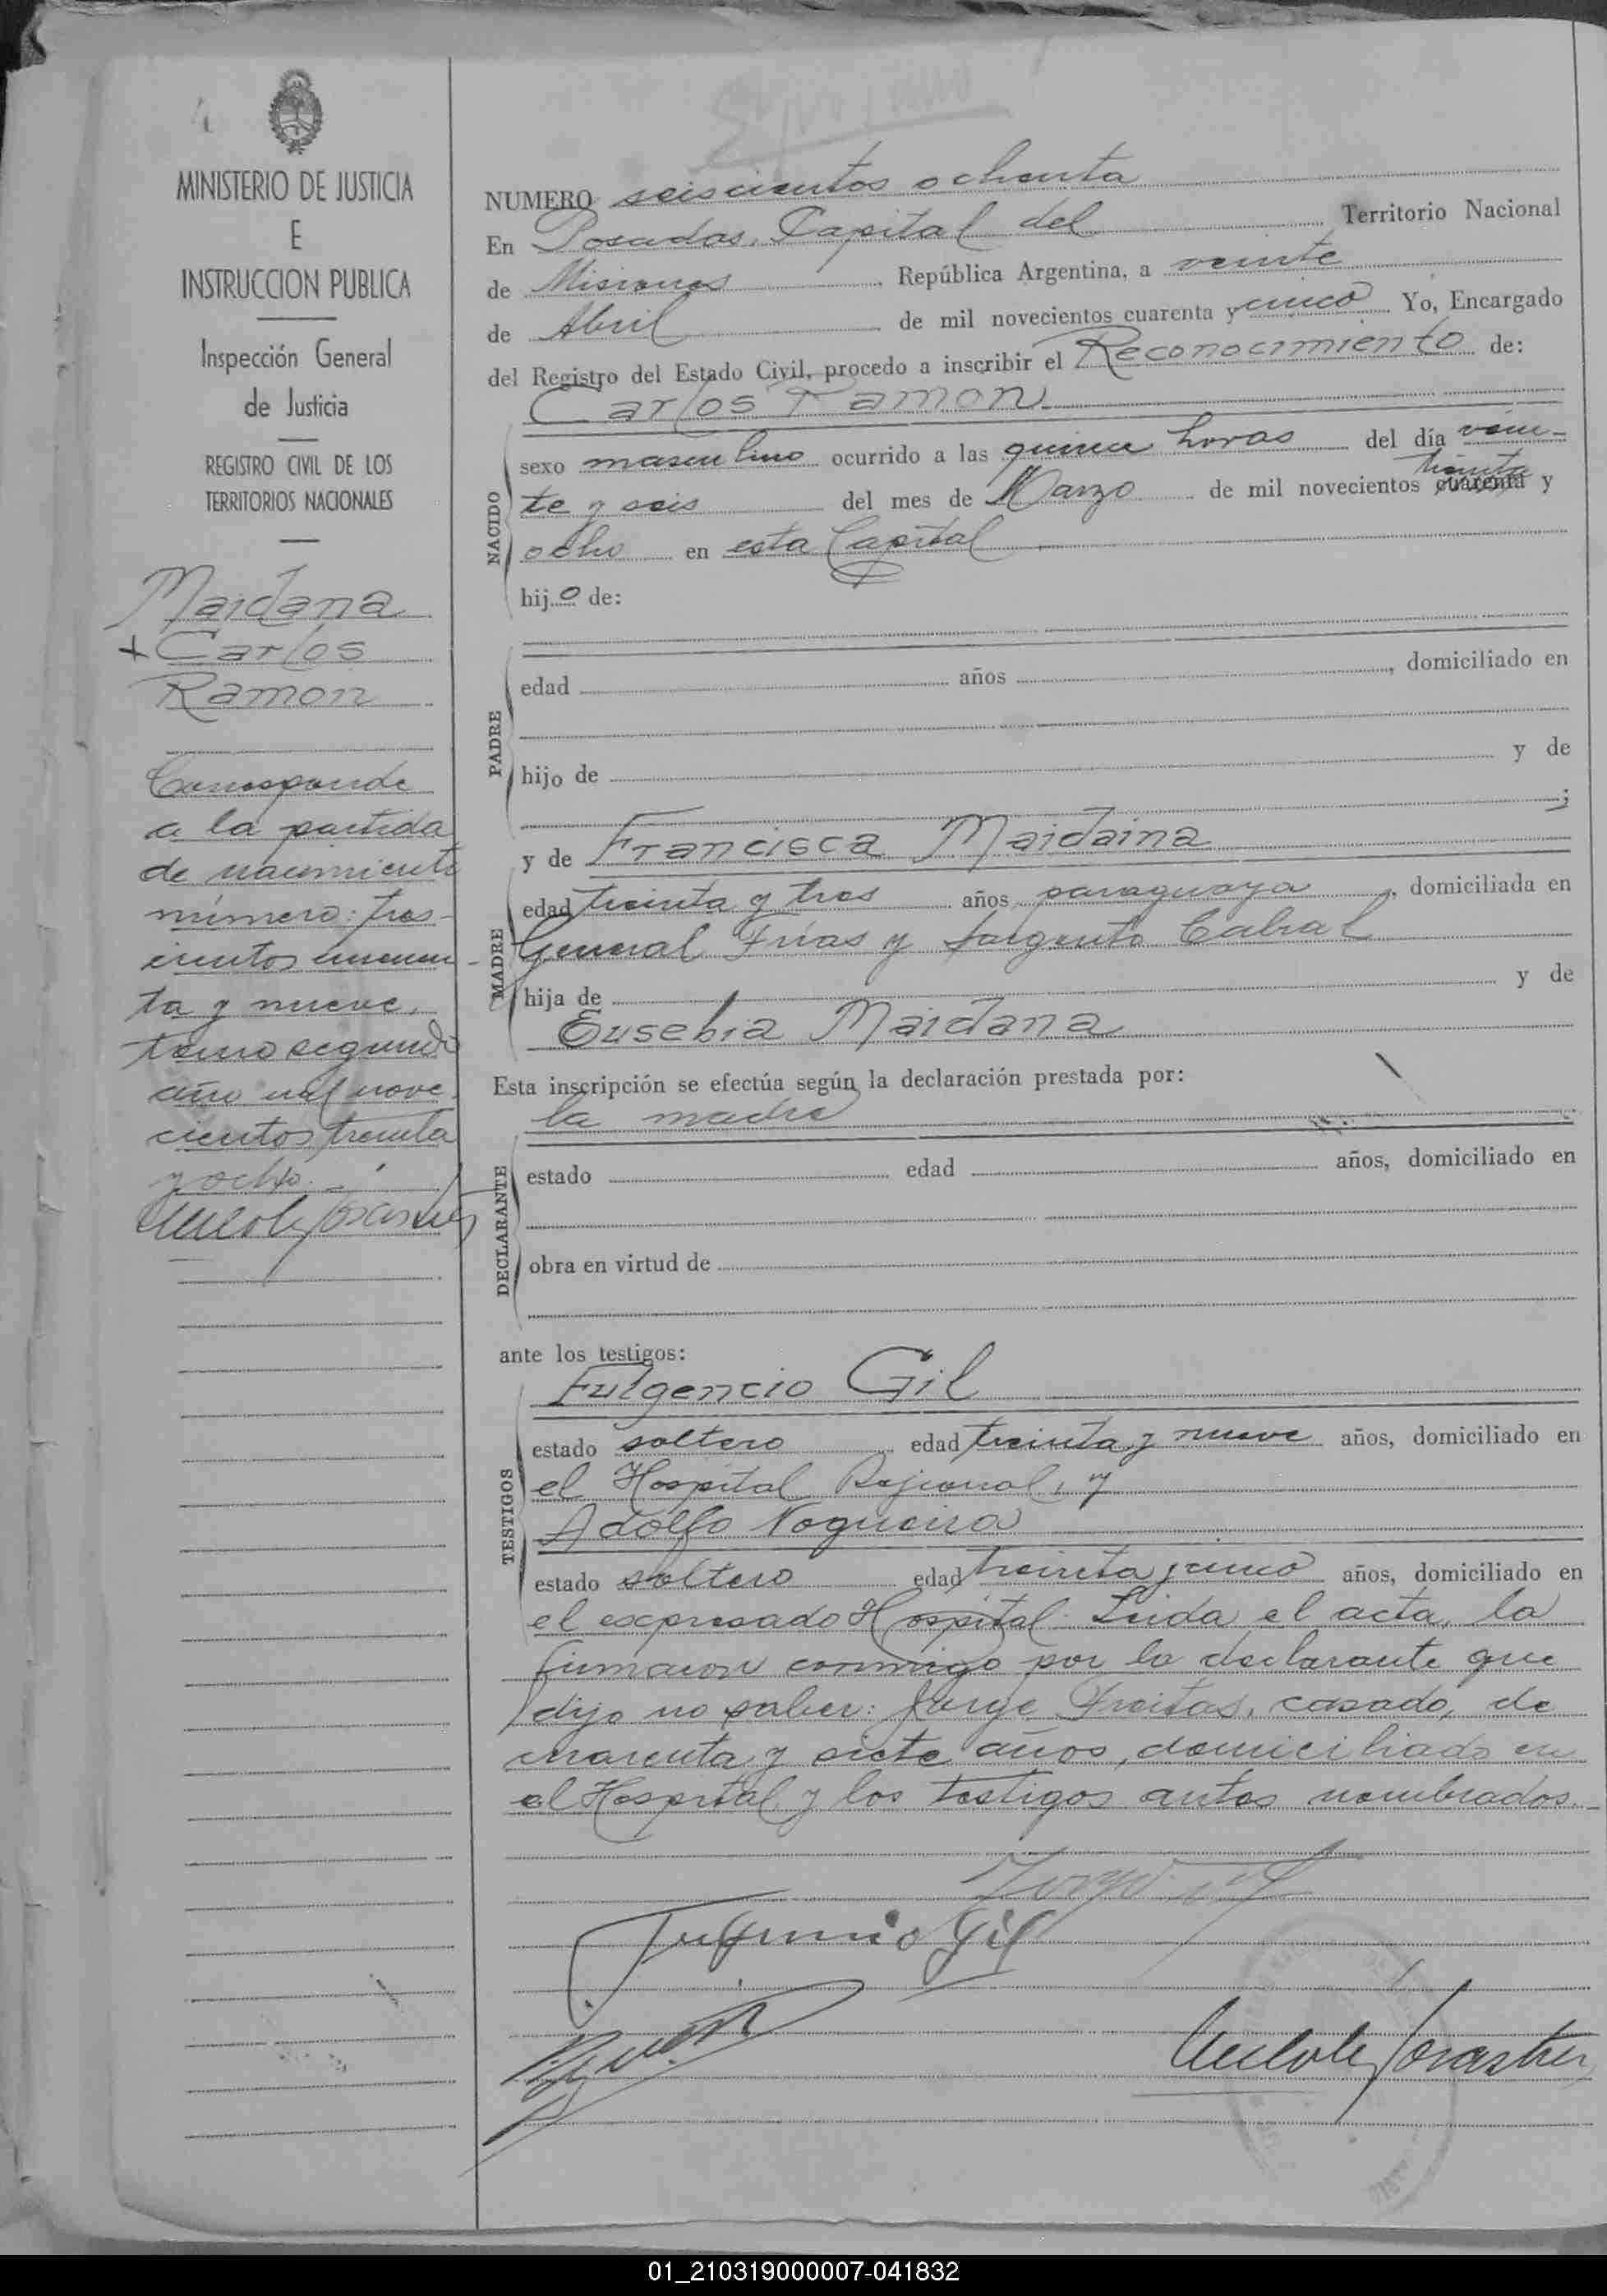 MINISTERIO DE JUSTICIA
E
INSTRUCCION PUBLICA
Inspección General
de Justicia
REGISTRO CIVIL DE LOS
TERRITORIOS NACIONALES
Maidana
+ Carlos
Ramon
Corresponde
a la partida
de nacimiento
número: tres-
cientos cincuen-
ta y nueve,
tomo segundo
año mil nove
cientos treinta
y ocho.-
NUMERO seiscientos ochenta
En Posadas, Capital del Territorio Nacional
de Misiones República Argentina, a veinte
de Abril de mil novecientos cuarenta y cinco Yo, Encargado
del Registro del Estado Civil, procedo a inscribir el Reconocimiento de:
Carlos Ramon
NACIDO
sexo masculino ocurrido a las quince horas del día vein-
treinta
te y seis del mes de Marzo de mil novecientos cuarenta y
ocho en esta Capital
hijo de:
PADRE
edad años , domiciliado en
hijo de y de
;
MADRE
y de Francisca Maidaina
edad treinta y tres años paraguaya, domiciliada en
General Frias y Sargento Cabral
hija de y de
Eusebia Maidana
Esta inscripción se efectúa según la declaración prestada por:
la madre
DECLARANTE
estado edad años, domiciliado en
obra en virtud de
ante los testigos:
TESTIGOS
Fulgencio Gil
estado soltero edad treinta y nueve años, domiciliado en
el Hospital Rejional, y
Adolfo Nogueira
estado soltero edad treinta y cinco años, domiciliado en
el expresado Hospital. Leida el acta, la
firmaron conmigo por la declarante que
dijo no saber: Jorge Freitas, casado, de
cuarenta y siete años, domiciliado en
el Hospital y los testigos antes nombrados.-
Fulgencio Gil
01_210319000007-041832